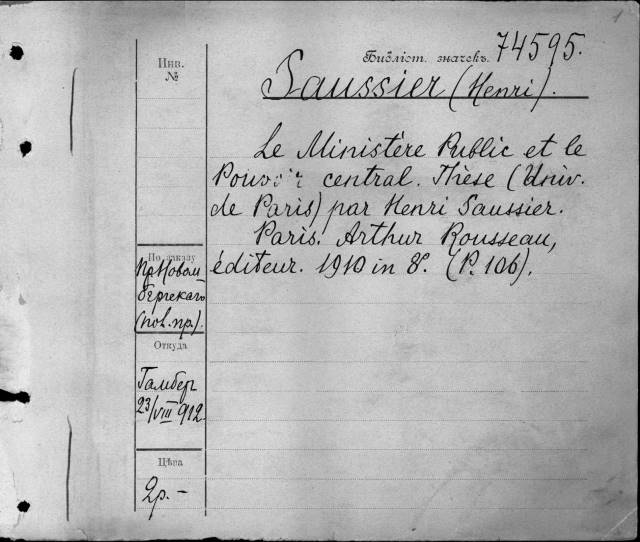 1
Библіот. значекъ. 74595.
Инв.
№
Saussier (Henri).
Le Ministère Public et le
Pouvoir central. Thèse (Univ.
de Paris) par Henri Saussier.
Paris. Arthur Rousseau,
éditeur. 1910 in 8°. (P. 106).
По заказу
Пр. Новом-
бергскаго
(пол. пр.).
Откуда
Гамбер
23/VIII 912
Цѣна
2р. -